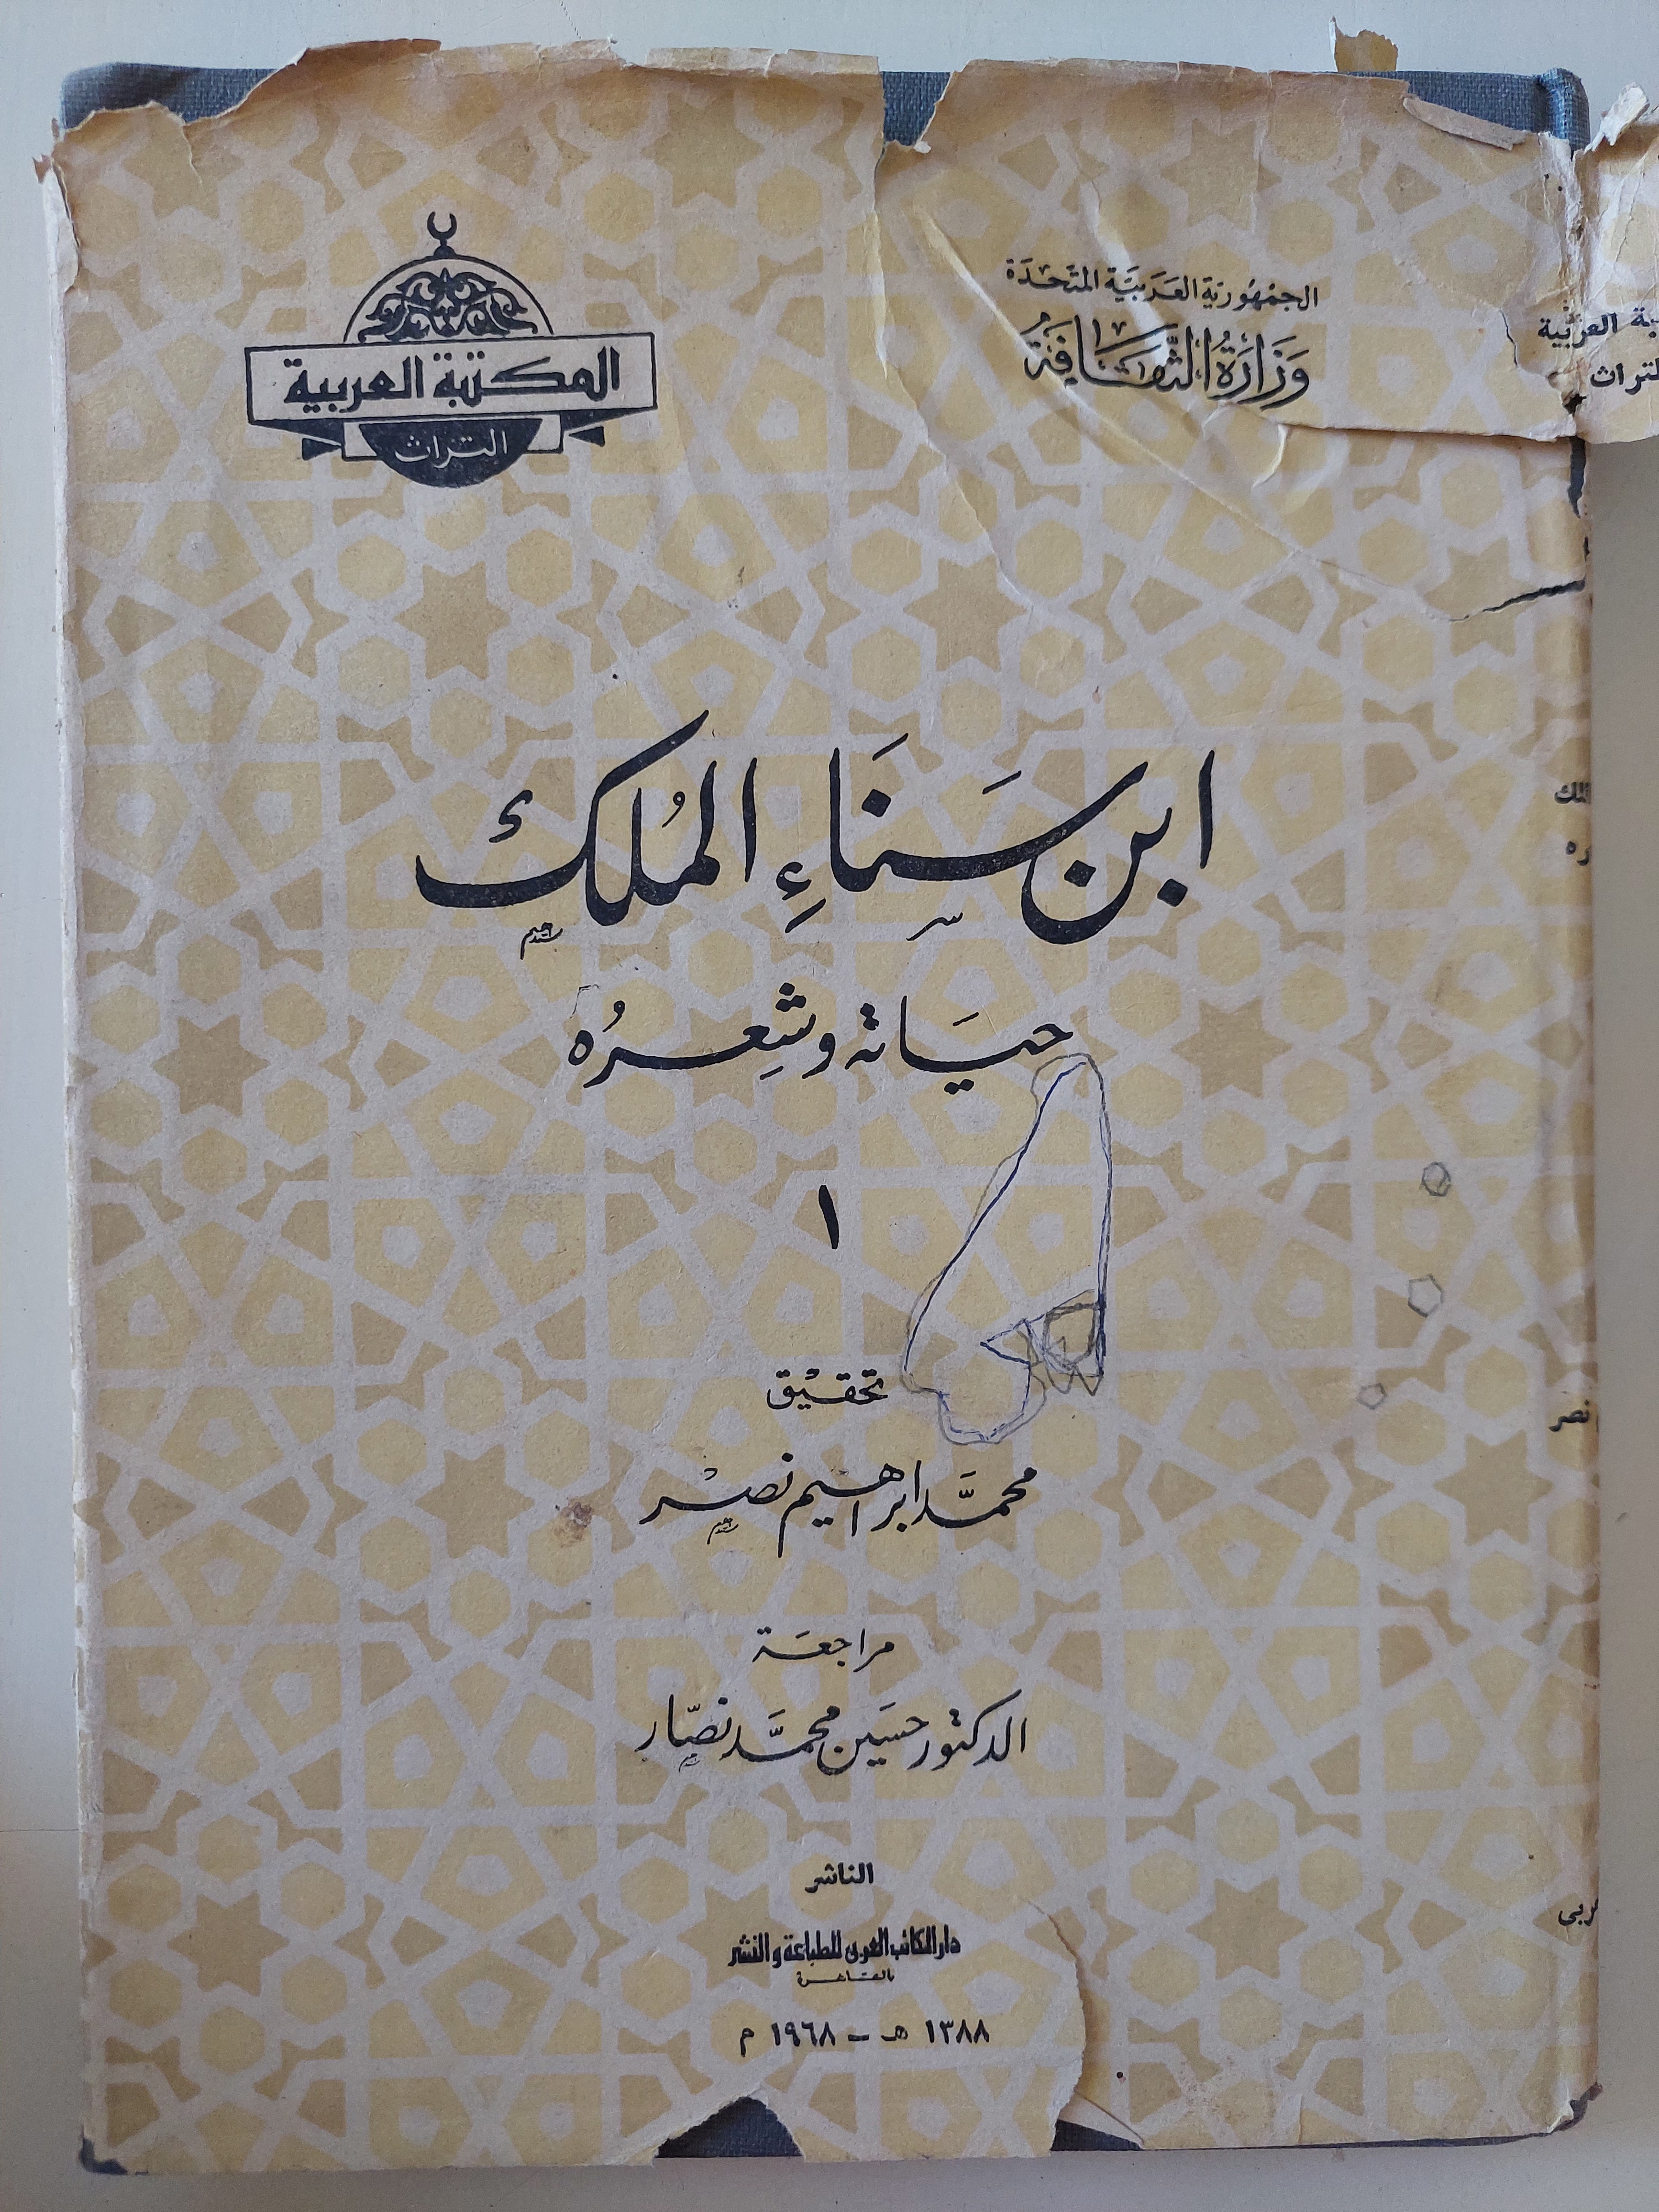 الجمهورية العربية المتحدة
وزارة الثقافة
المكتبة العربية
التراث
ابن سَنَاءِ المُلك
حيَاته وشِعرُه
١
تحقيق
محمَّد إبراهيم نصر
مراجعَة
الدكتور حسَين محمَّد نصّار
الناشر
دار الكاتب العربى للطباعة والنشر
بالقاهرة
١٣٨٨ هـ – ١٩٦٨ م
العربية
التراث
نصر